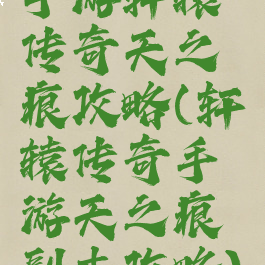 手游轩辕
传奇天之
痕攻略(轩
辕传奇手
游天之痕
副本攻略)